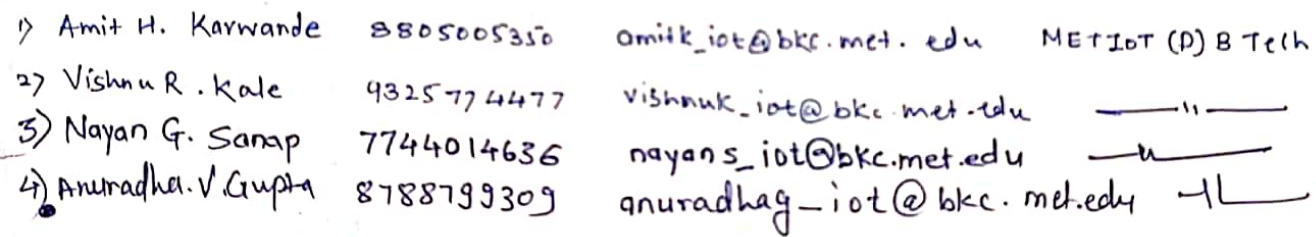 1) Amit H. Karwande 8805005350 amitk_iot@bkc.met.edu MET IOT (D) B Tech
2) Vishnu R. Kale 9325774477 vishnuk_iot@bkc.met.edu —〃—
3) Nayan G. Sanap 7744014636 nayans_iot@bkc.met.edu —〃—
4) Anuradha.V.Gupta 8788799309 anuradhag_iot@bkc.met.edu —〃—